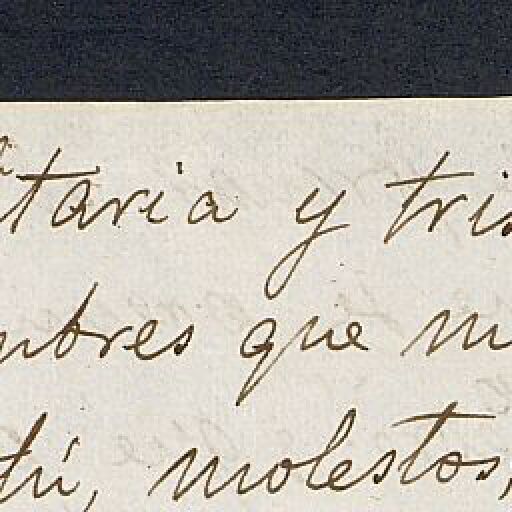 itaria y tris
mbres que m
tú, molestos,